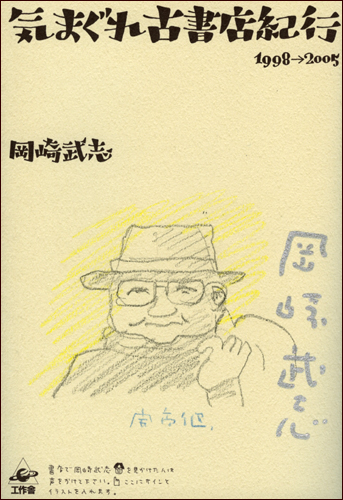 気まぐれ古書店紀行
1998→2005
岡崎武志
岡崎武志
で岡崎武志を見かけた人は
声をかけて下さい。ここにサインと
イラストを入れます。
工作舎